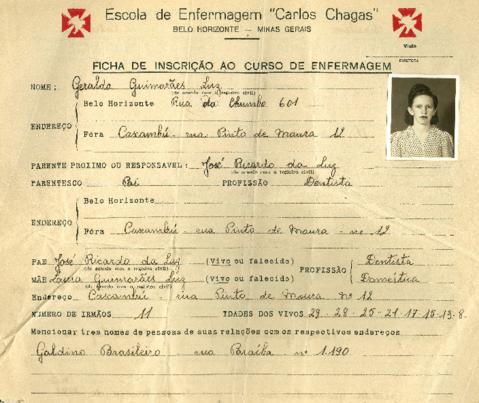 Escola de Enfermagem "Carlos Chagas"
BELO HORIZONTE — MINAS GERAIS
Visto
DIRETORA
FICHA DE INSCRIÇÃO AO CURSO DE ENFERMAGEM
NOME: Geralda Guimarães Luz
(de acordo com o registro civil)
Belo Horizonte Rua do Chumbo 601
ENDEREÇO
Fóra Caxambú - rua Pinto de Moura 12
PARENTE PROXIMO OU RESPONSAVEL: José Ricardo da Luz
(de acordo com o registro civil)
PARENTESCO Pai PROFISSÃO Dentista
Belo Horizonte
ENDEREÇO
Fóra Caxambú - rua Pinto de Moura - nº 12
PAE José Ricardo da Luz (Vivo ou falecido) PROFISSÃO Dentista
(de acordo com o registro civil)
MÃE Guimarães Luz (Vivo ou falecido) Doméstica
(de acordo com o registro civil)
Endereço Caxambú - rua Pinto de Moura nº 12
NUMERO DE IRMÃOS 11 IDADES DOS VIVOS 29-28-25-21-17-15-13-8
Mencionar tres nomes de pessoas de suas relações com os respectivos endereços
Galdino Brasileiro rua nº 1.190